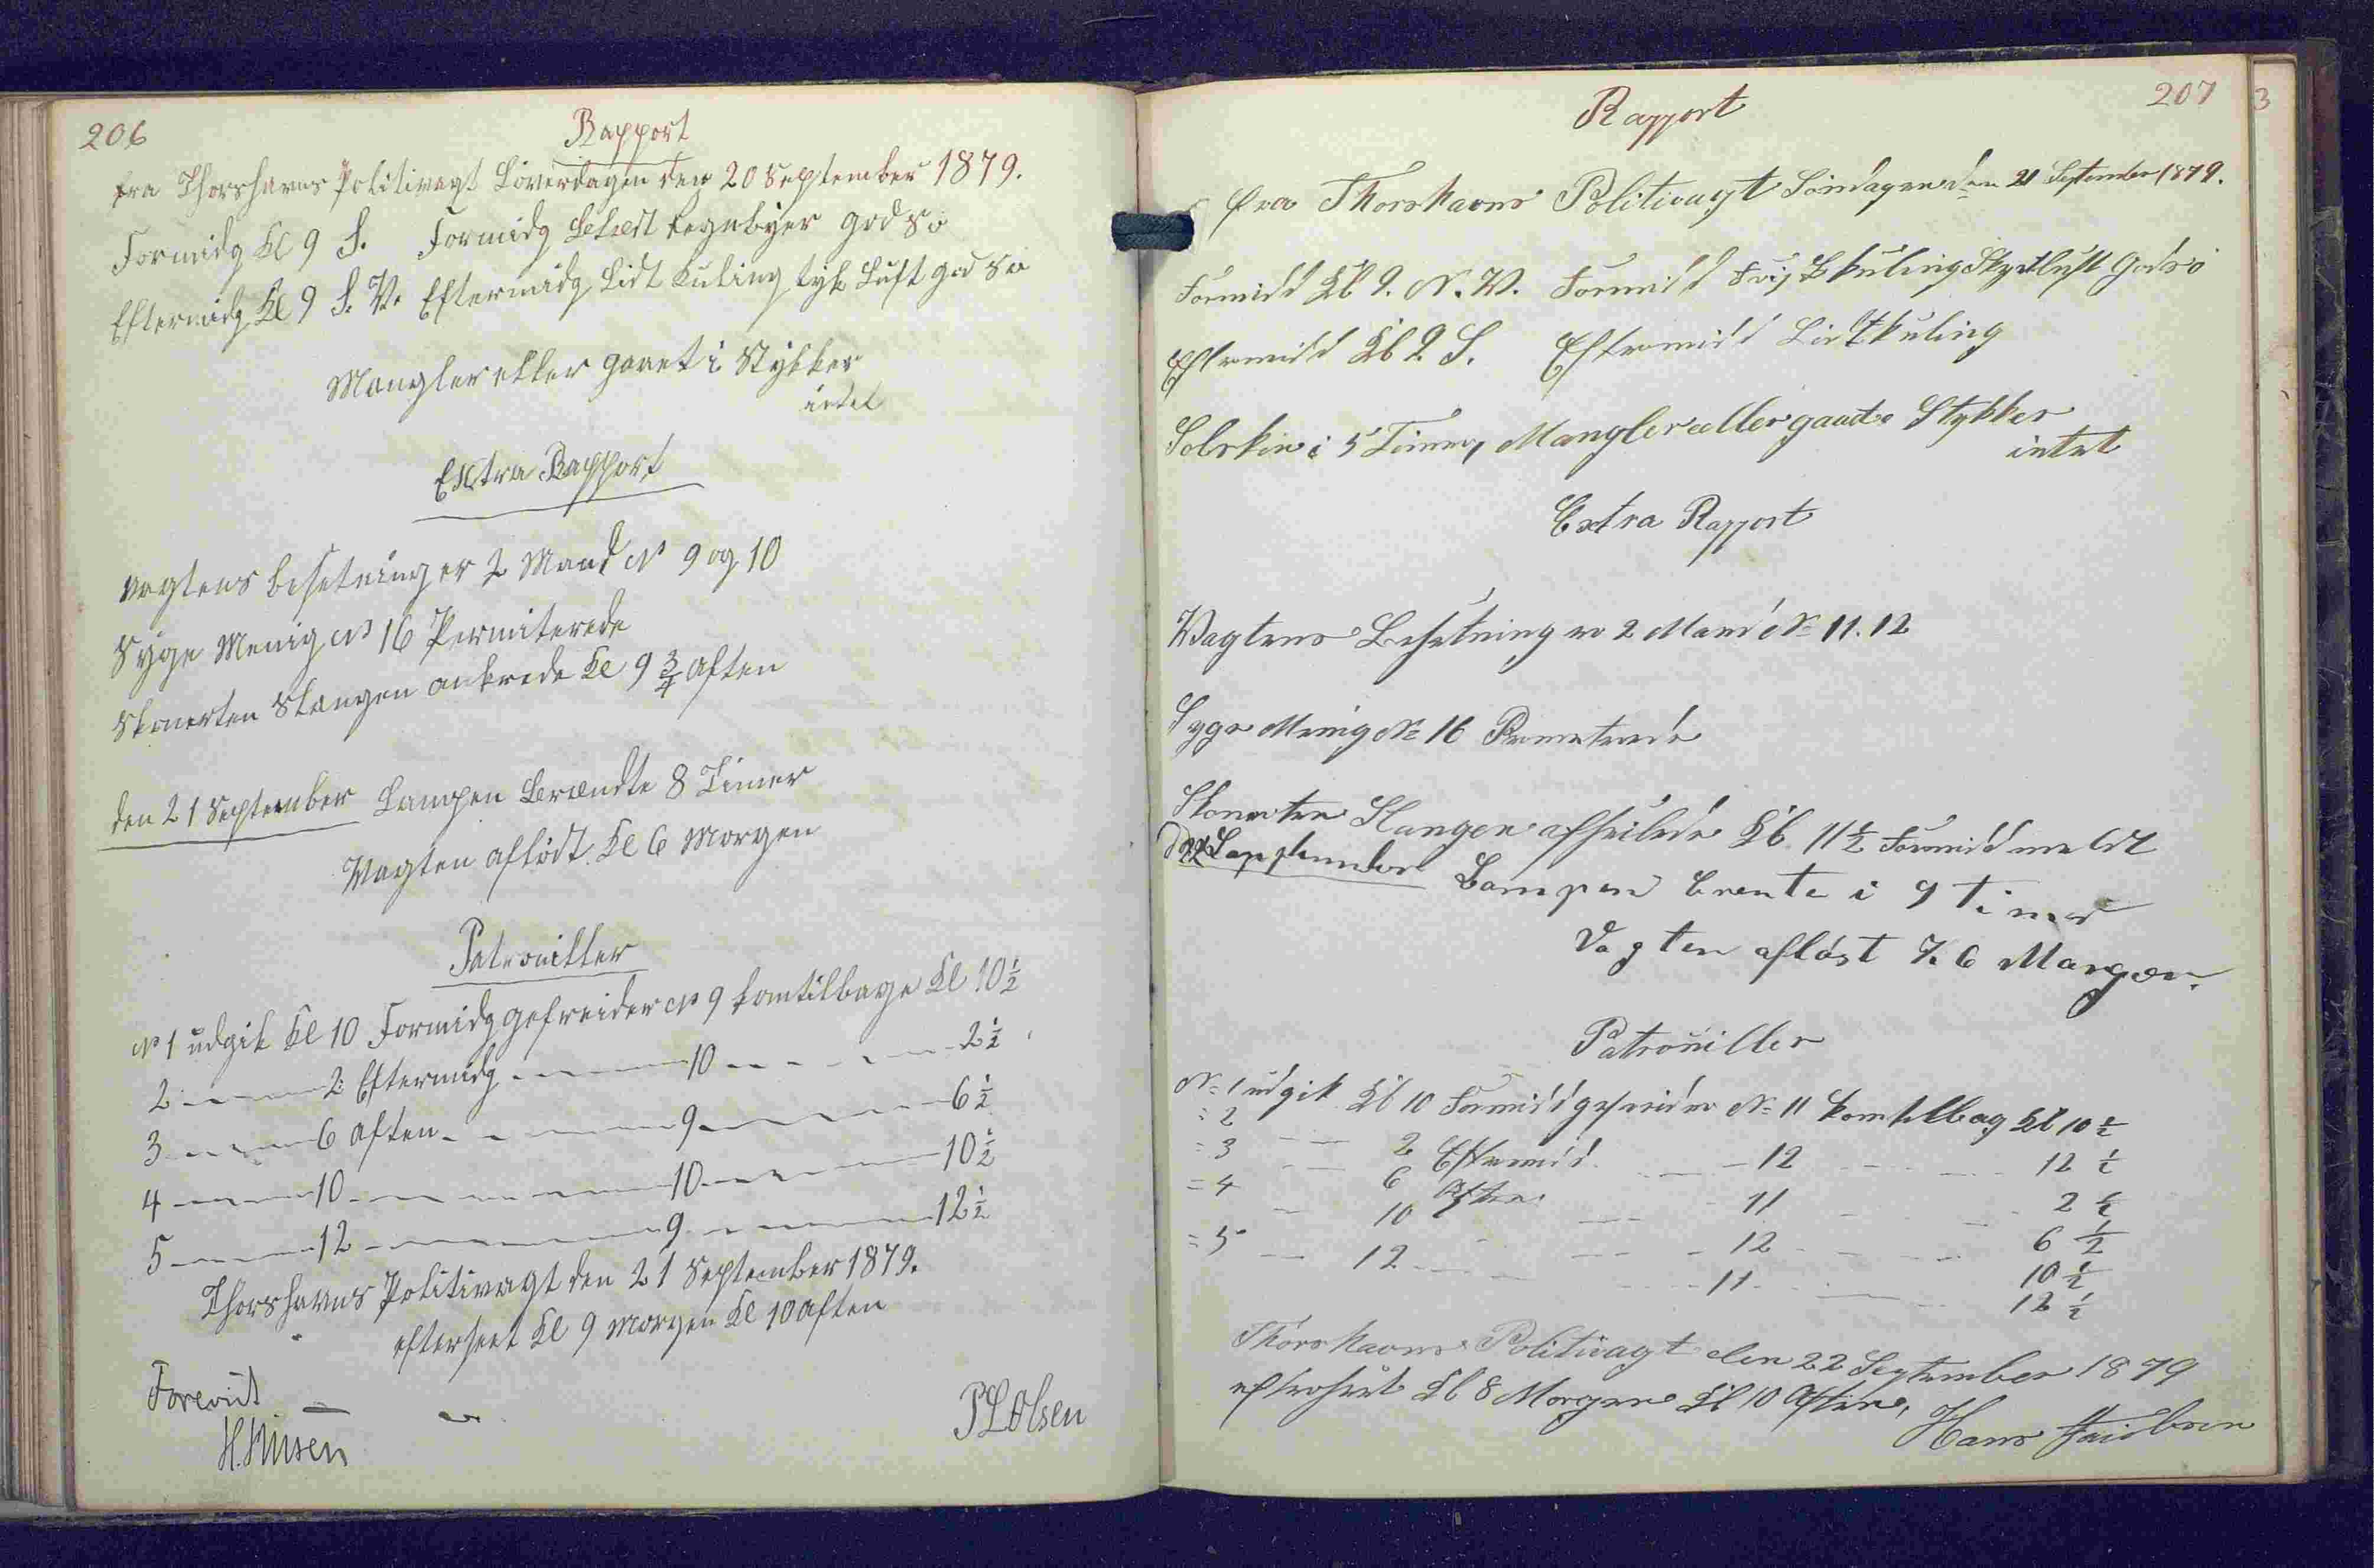 206
Rapport
fra Thorshavns Politivagt Löverdagen den 20 September 1879.
Formidg Kl 9 S. Formidg Letedt regnbyer god Sö
Eftermidg Kl 9 S. V. Eftermidg Lidt Kuling tyk Luft god Sö
Mangler eller gaaet i Stykker
intet
Extra Rapport
Vagtens besetning er 2 Mand No 9 og 10
Syge Menig No 16 Permiterede
Skonerten Slangen ankrede Kl 9 3/4 Aften
den 21 September Lampen Brændte 8 Timer
Vagten aflödt Kl 6 Morgen
Patrouiller
No 1 udgik Kl 10 Formidg gefreider No 9 kom tilbage Kl 10 1/2
2 — 2 Eftermidg — 10 — 2 1/2
3 — 6 Aften — 9 — 6 1/2
4 — 10 — 10 — 10 1/2
5 — 12 — 9 — 12 1/2
Thorshavns Politivagt den 21 September 1879.
efterseet Kl 9 Morgen Kl 10 Aften
Forevist
P L Olsen
207
Rapport
fra Thorshavns Politivagt Söndagen den 21 September 1879.
Formidd Kl 9. N. V. Formidd Kuling Skyetluft God sö
Eftermidd Kl 9. S. Eftermidd Lidt kuling
Solskin i 5 Timer, Mangler eller gaaet i Stykker
intet
Extra Rapport
Vagtens Besetning er 2 Mand No 11. 12
Syge Menig No 16 Permeterede
Skonerten Slangen afseilede Kl. 11 1/2 Formidd
d 22 September Lampen brente i 9 timer
Vagten aflöst K 6 Morgen.
Patrouiller
No 1 udgik Kl 10 Formidd gefreider No 11 kom tilbag Kl 10 1/2
= 2 — 2 Eftermidd — 12 — 12 1/2
= 3 — 6 Aften — 11 — 2 1/2
= 4 — 10 — 12 — 6 1/2
= 5 — 12 — 11 — 10 1/2
12 1/2
Thorshavns Politivagt den 22 September 1879
efterseet Kl 8 Morgen Kl 10 Aften,
Hans
3